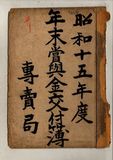 昭和十五年度
年末賞與金交付簿
專賣局